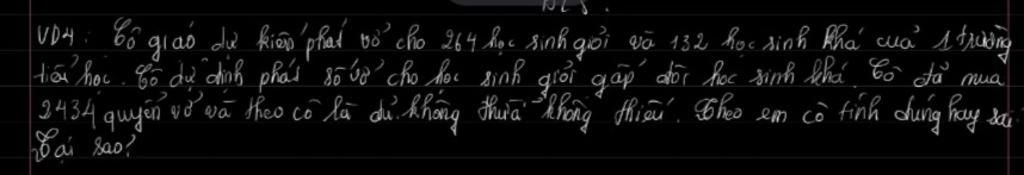 VD4: Cô giáo dự kiến phát vở cho 264 học sinh giỏi và 132 học sinh khá của 1 trường
tiểu học. Cô dự định phát số vở cho học sinh giỏi gấp đôi học sinh khá. Cô đã mua
2434 quyển vở và theo cô là đủ. không thừa không thiếu. Theo em cô tính đúng hay sai.
Tại sao?